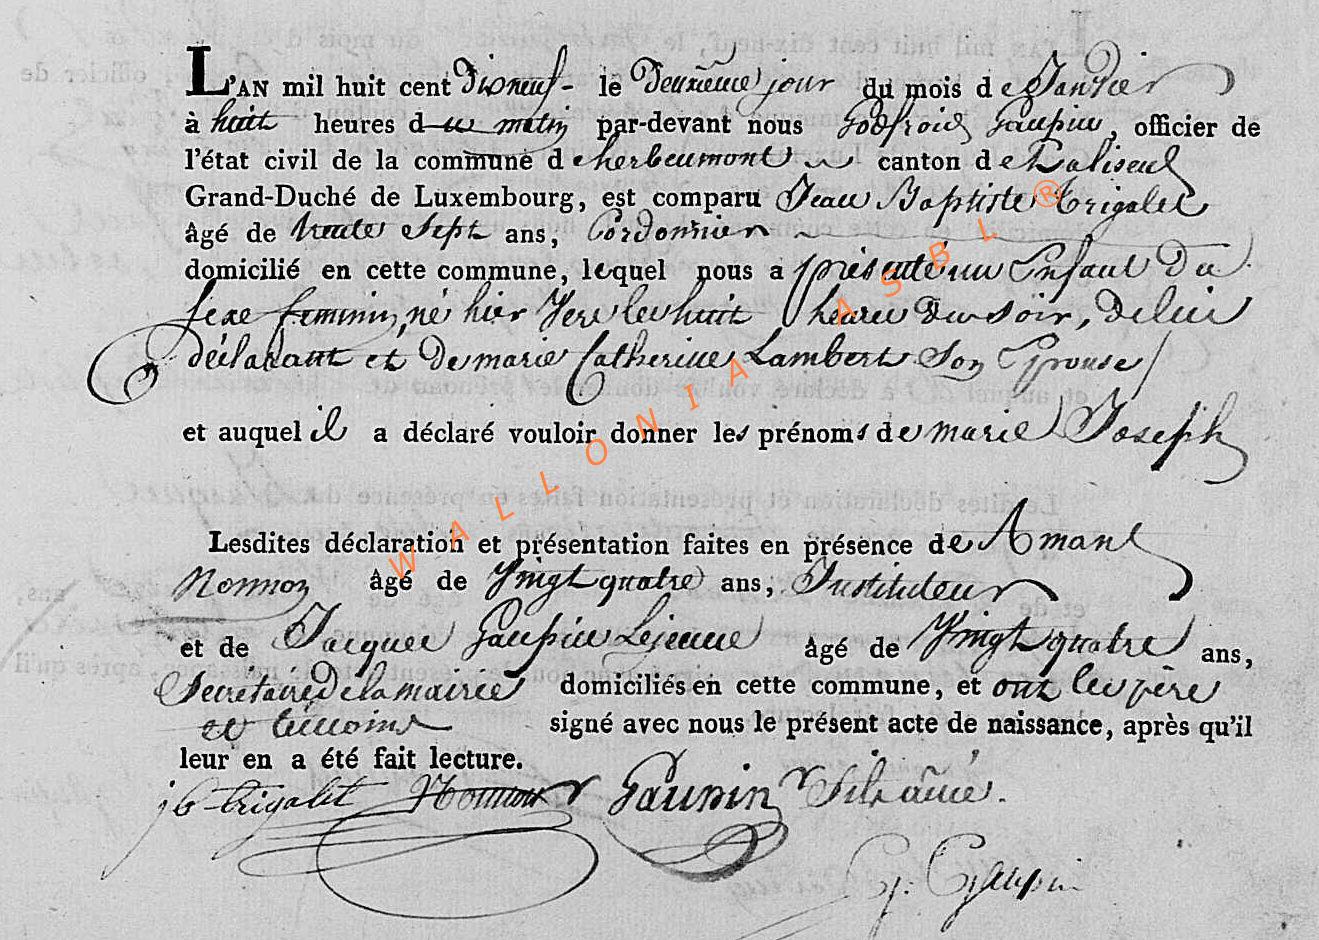 L'AN mil huit cent Dixneuf - le Deuxieme jour du mois de Janvier
à huit heures du matin par-devant nous Godfroid Gaupin, officier de
l'état civil de la commune d'herbeumont canton de Paliseul
Grand-Duché de Luxembourg, est comparu Jean Baptiste trigalet
âgé de trente sept ans, Cordonnier
domicilié en cette commune, lequel nous a présenté un Enfant Du
sexe feminin, né hier Vers les huit heures du soir, de lui
déclarant et De marie Catherine Lambert Son Epouse
et auquel il a déclaré vouloir donner les prénoms de marie Joseph
Lesdites déclaration et présentation faites en présence de Amand
Nonnon âgé de Vingt quatre ans, Instituteur
et de Jacques Gaupin Lejeune âgé de Vingt quatre ans,
Secretaire De la mairie domiciliés en cette commune, et ont les père
et temoins signé avec nous le présent acte de naissance, après qu'il
leur en a été fait lecture.
j b trigalet Nonnon Gaupin fils ainé.
G. Gaupin
WALLONIA ASBL ®